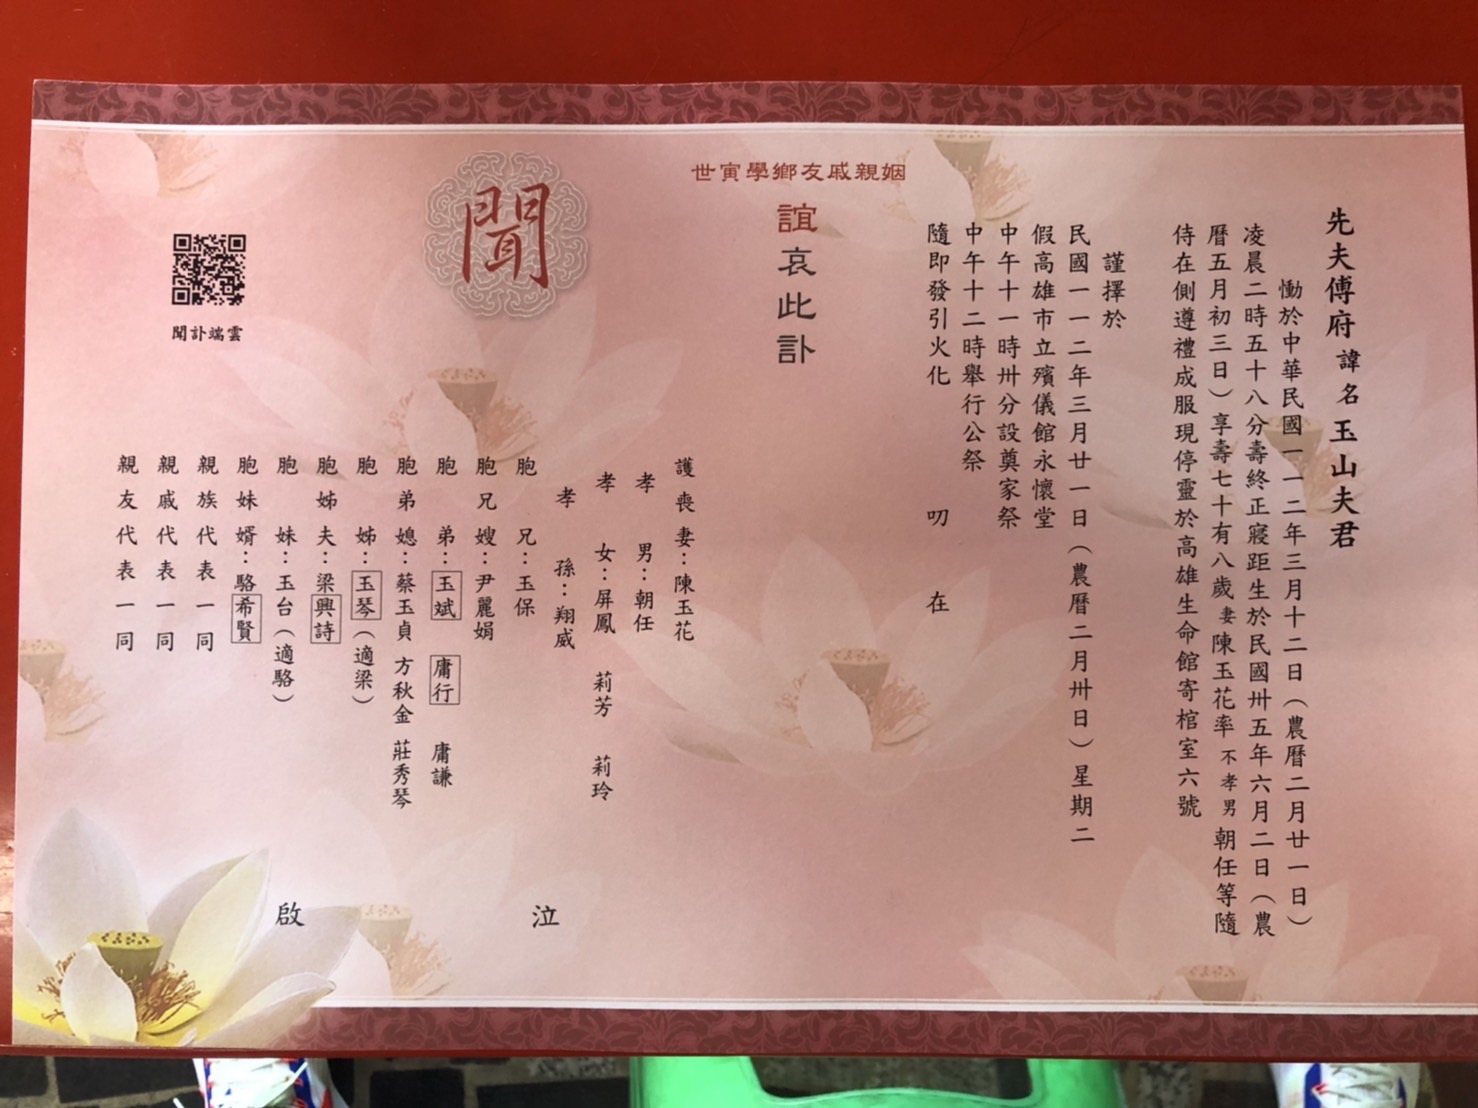 先夫傅府諱名玉山夫君
慟於中華民國一一二年三月十二日（農曆二月廿一日）
凌晨二時五十八分壽終正寢距生於民國卅五年六月二日（農
曆五月初三日）享壽七十有八歲妻陳玉花率不孝男朝任等隨
侍在側遵禮成服現停靈於高雄生命館寄棺室六號
謹擇於
民國一一二年三月廿一日（農曆二月卅日）星期二
假高雄市立殯儀館永懷堂
中午十一時卅分設奠家祭
中午十二時舉行公祭
隨即發引火化 叨在
世寅學鄉友戚親姻
誼哀此訃
聞
護喪妻：陳玉花
孝男：朝任
孝女：屏鳳 莉芳 莉玲
孝孫：翔威
胞兄：玉保
胞兄嫂：尹麗娟
胞弟：玉斌 庸行 庸謙
胞弟媳：蔡玉貞 方秋金 莊秀琴
胞姊：玉琴（適梁）
胞姊夫：梁興詩
胞妹：玉台（適駱）
胞妹婿：駱希賢
親族代表一同
親戚代表一同
親友代表一同
泣
啟
聞訃端雲